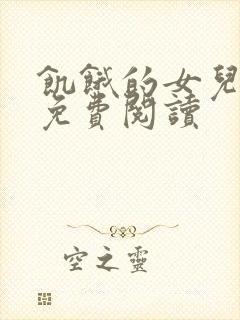 飢餓的女兒
免費閱讀
空之靈